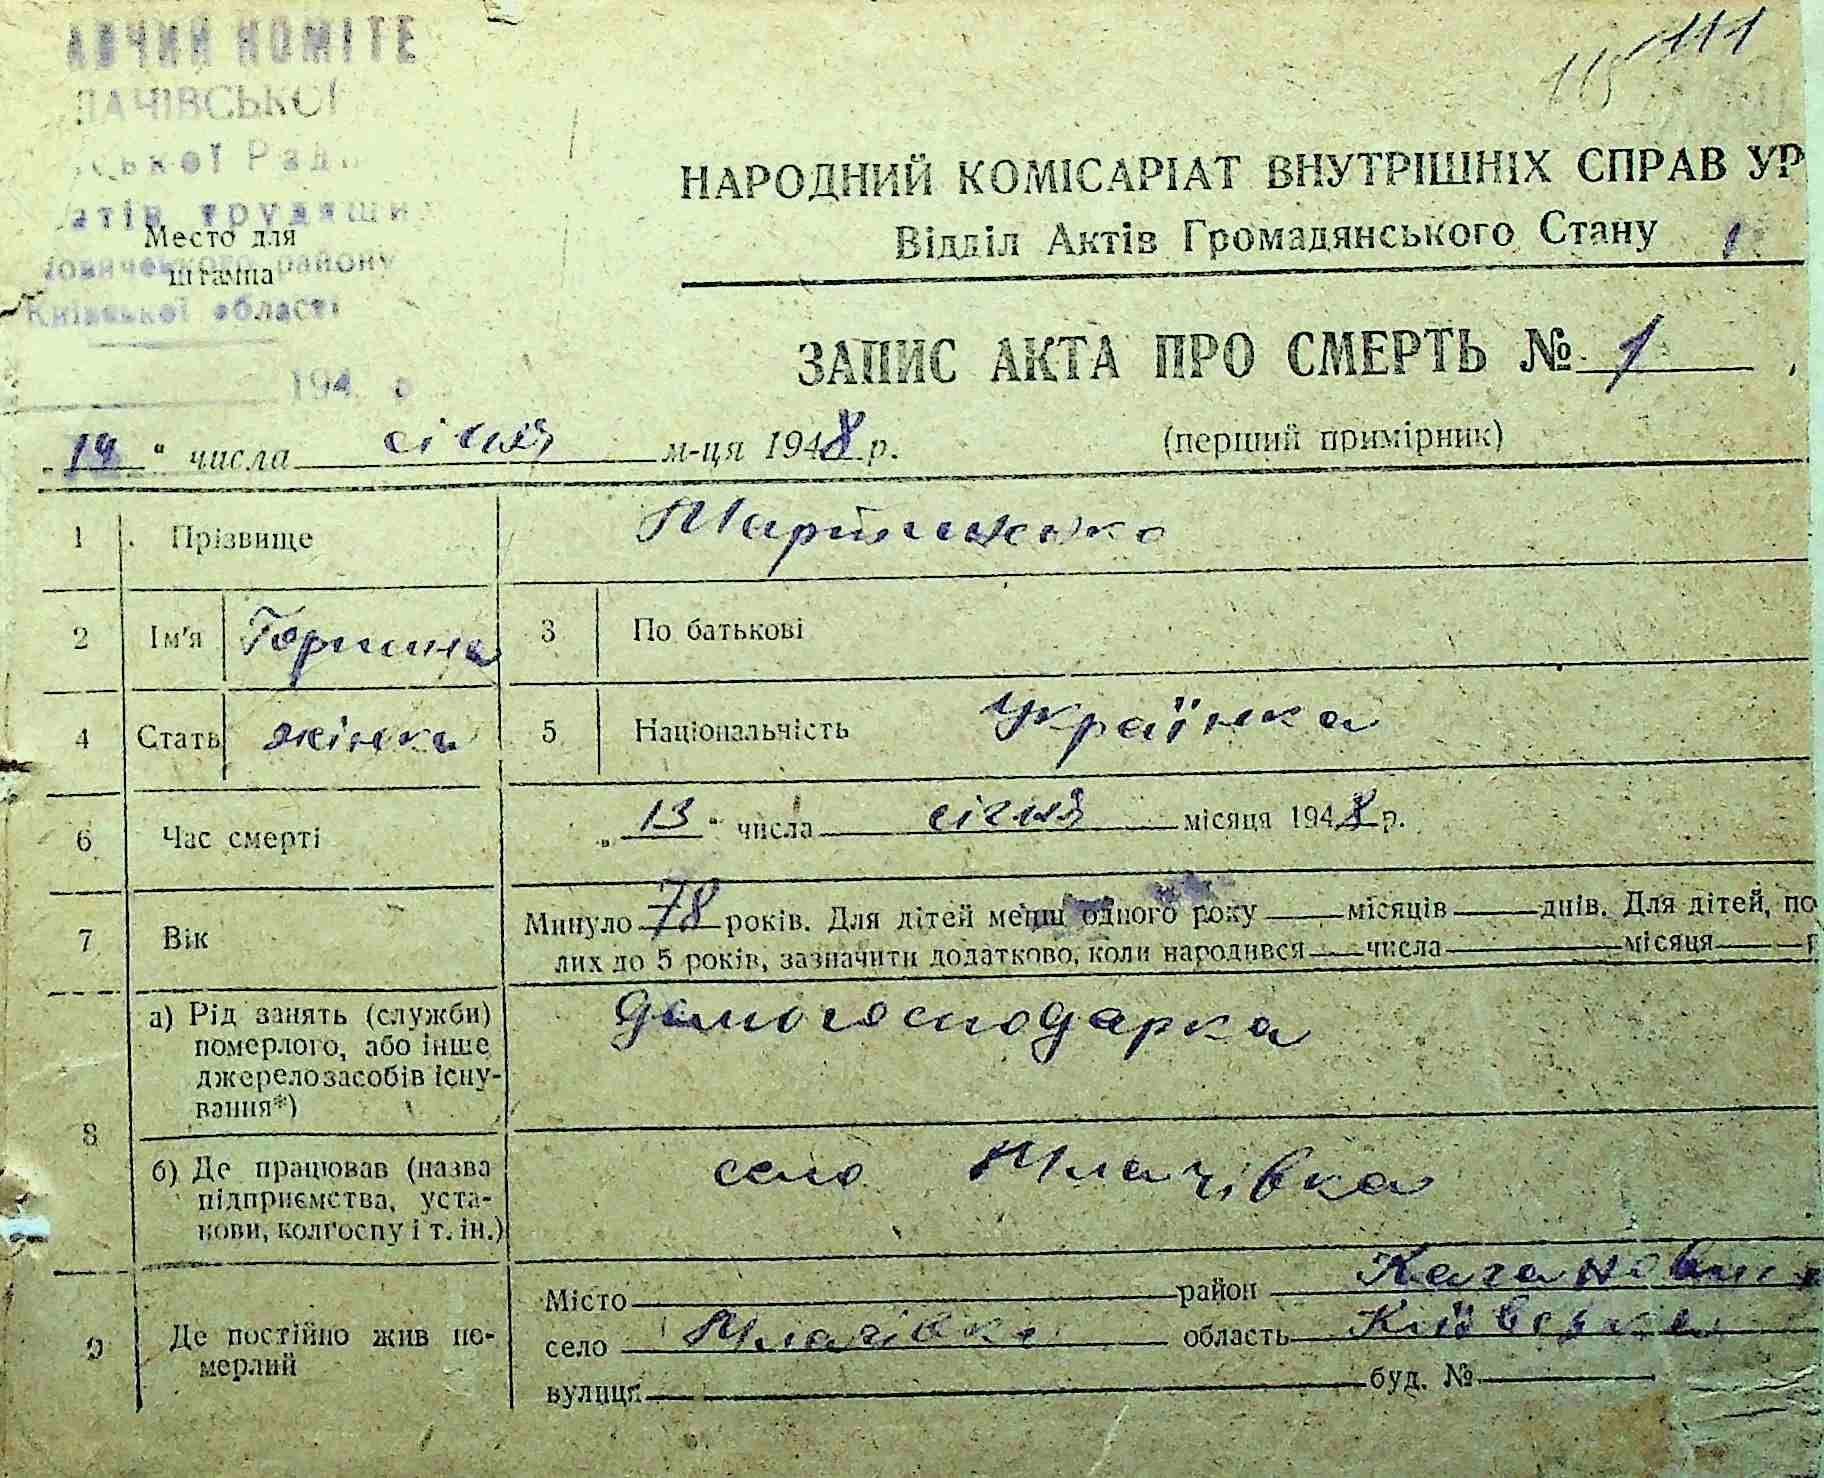 АВЧИЙ КОМІТЕ
ЛАЧІВСЬКОЇ
ської Рад
атів трудящи
Место для
новичевського району
штампа
Київської області
194 р
115 111
НАРОДНИЙ КОМІСАРІАТ ВНУТРІШНІХ СПРАВ УР
Відділ Актів Громадянського Стану 1
ЗАПИС АКТА ПРО СМЕРТЬ № 1
„14" числа січня м-ця 1948 р.
(перший примірник)
1 Прізвище Мартиненко
2 Ім'я Горпина 3 По батькові
4 Стать жінка 5 Національність Українка
6 Час смерті „13" числа січня місяця 1948 р.
7 Вік Минуло 78 років. Для дітей менш одного року місяців днів. Для дітей, по
лих до 5 років, зазначити додатково, коли народився числа місяця р
8 а) Рід занять (служби) померлого, або інше джерело засобів існування*) Домогосподарка
б) Де працював (назва підприємства, установи, колгоспу і т. ін.) село Млачівка
9 Де постійно жив померлий
Місто район Каганович
село Млачівка область Київська
вулиця буд. №